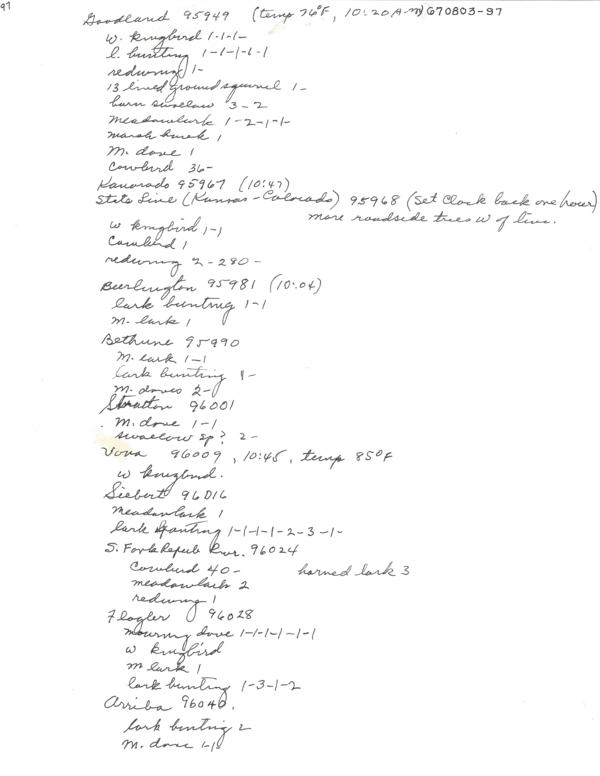 97
Goodland 95949 (temp 76°F, 10:20 A-M) G70803-97
W. kingbird 1-1-1-
l. bunting 1-1-1-1-1
redwing 1-
13 lined ground squirrel 1-
barn swallow 3-2
meadowlark 1-2-1-1-
marsh hawk 1
M. dove 1
Cowbird 36-
Kanorado 95967 (10:47)
State Line (Kansas-Colorado) 95968 (Set Clock back one hour)
more roadside trees W of line.
W kingbird 1-1
Cowbird 1
redwing 2-280-
Burlington 95981 (10:04)
lark bunting 1-1
M. lark 1
Bethune 95990
M. lark 1-1
lark bunting 1-
M. doves 2-
Stratton 96001
M. dove 1-1
swallow sp? 2-
Vona 96009, 10:45, temp 85°F
W kingbird.
Siebert 96016
Meadowlark 1
lark bunting 1-1-1-1-2-3-1-
S. Fork Repub Rvr. 96024
Cowbird 40- horned lark 3
meadowlark 2
redwing 1
Flagler 96028
mourning dove 1-1-1-1-1-1
W kingbird
M lark 1
lark bunting 1-3-1-2
Arriba 96040.
lark bunting 2
M. dove 1-1